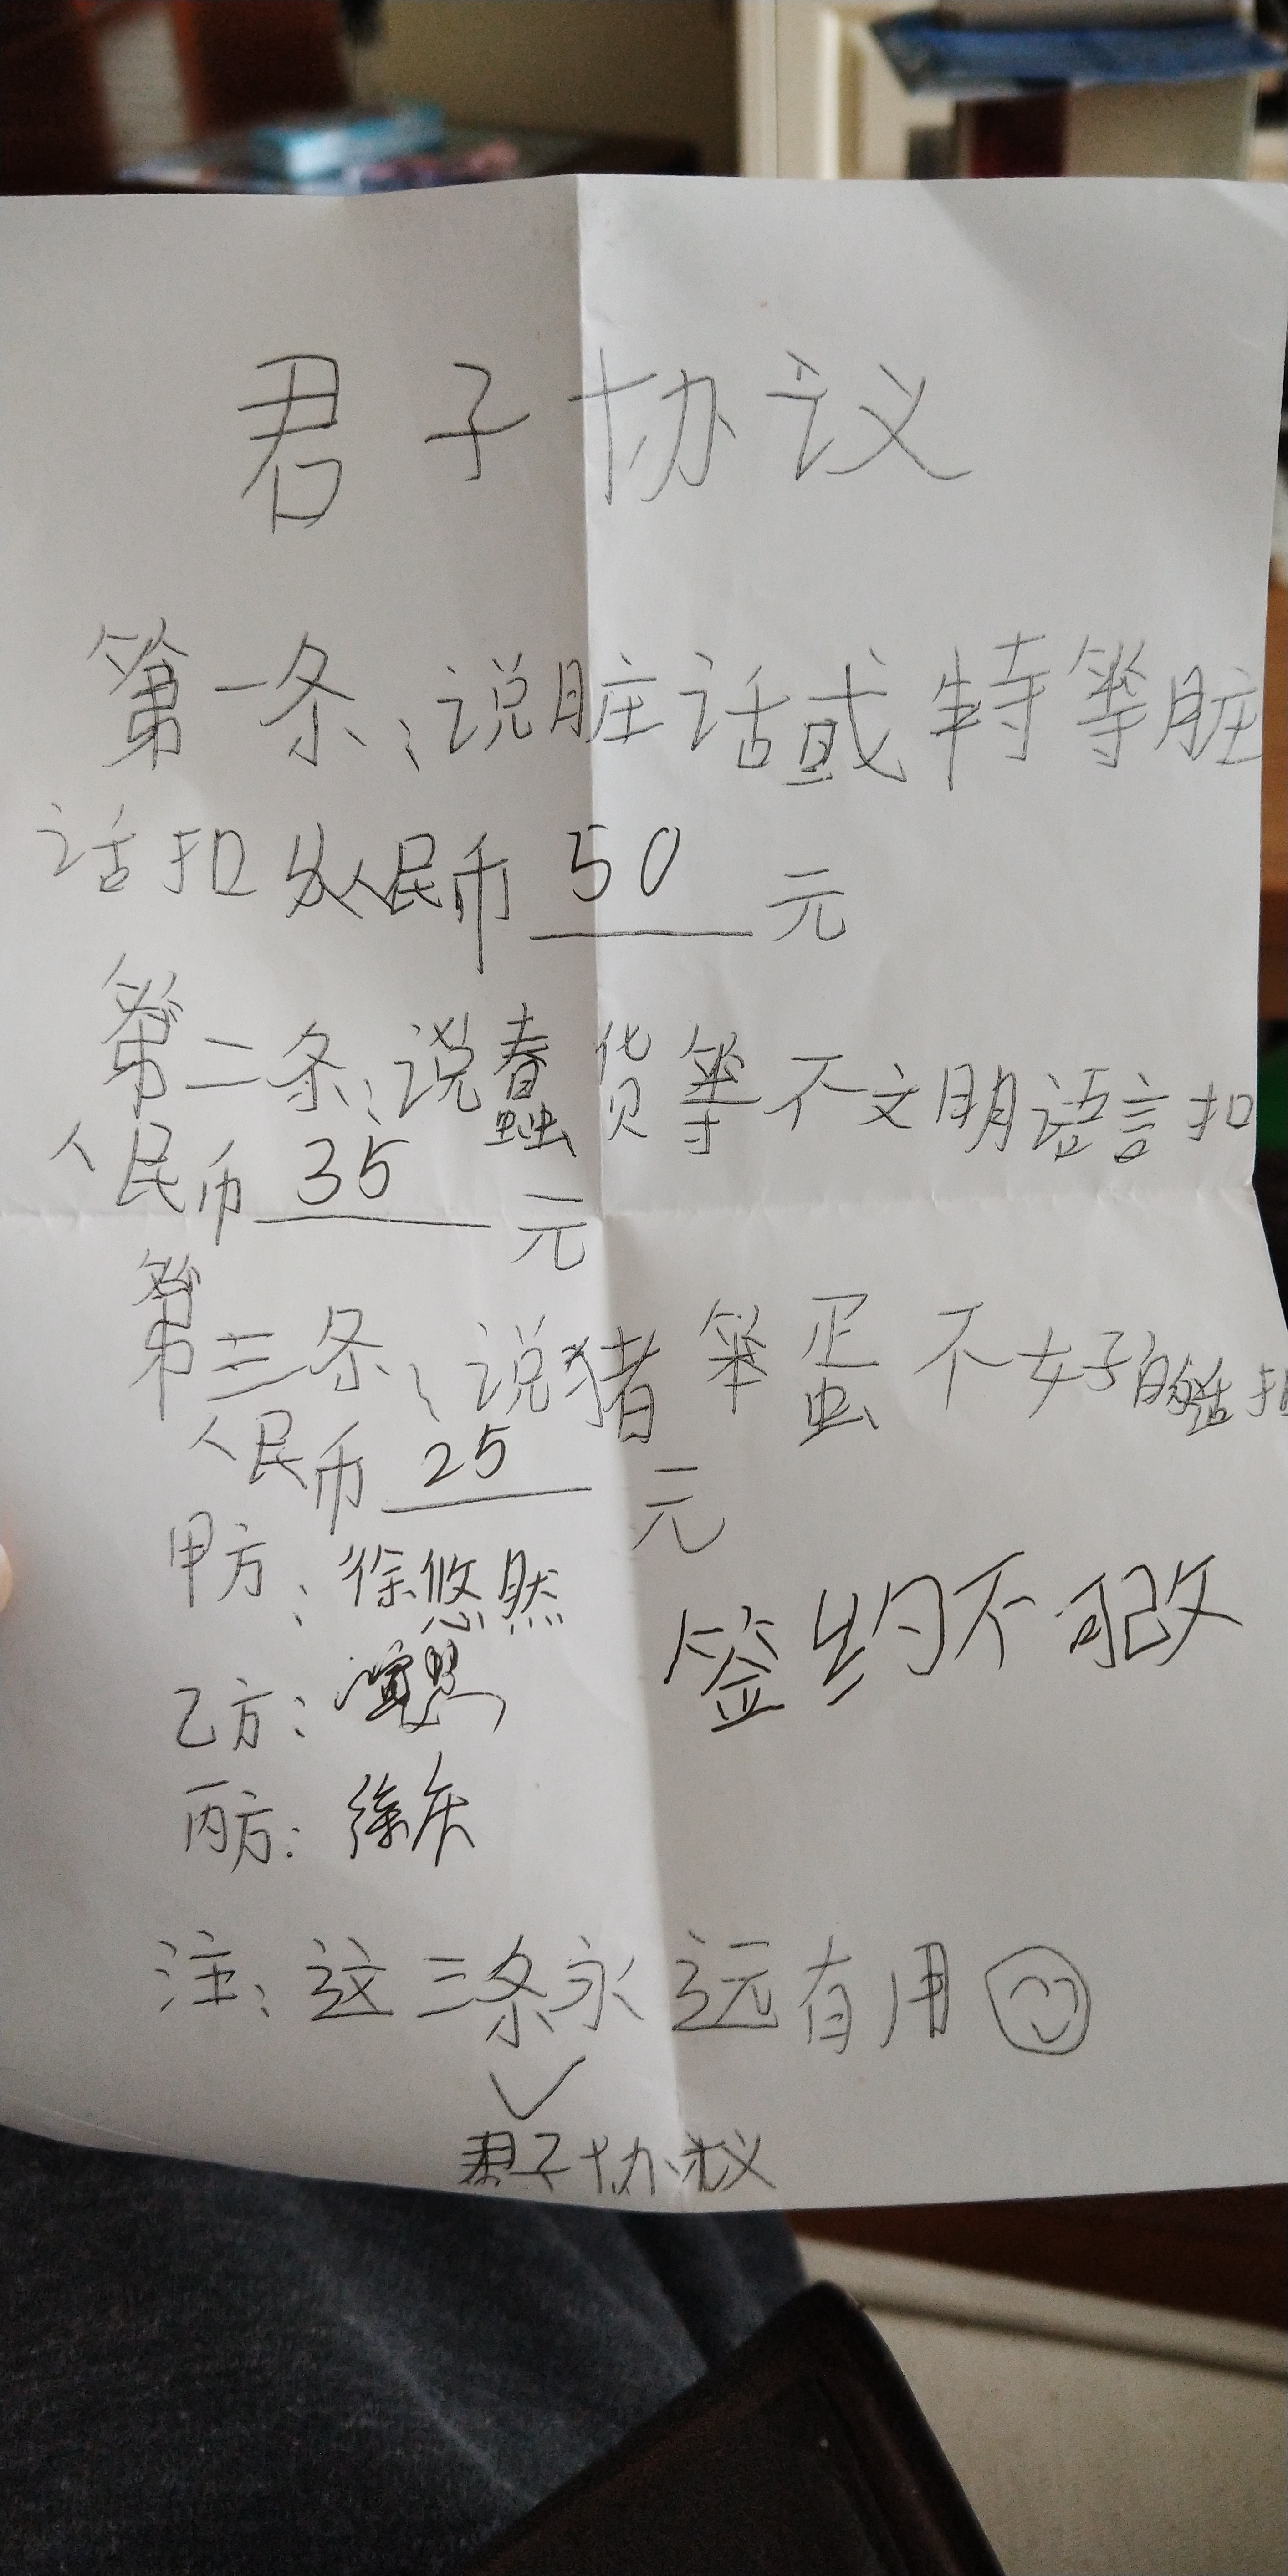 君子协议
第一条：说脏话或特等脏
话扣人民币 50 元
第二条：说蠢货等不文明语言扣
人民币 35 元
第三条：说猪笨蛋不好的话扣
人民币 25 元
甲方：徐悠然
签约不可改
乙方：
丙方：徐庆
注：这三条永远有用
君子协议